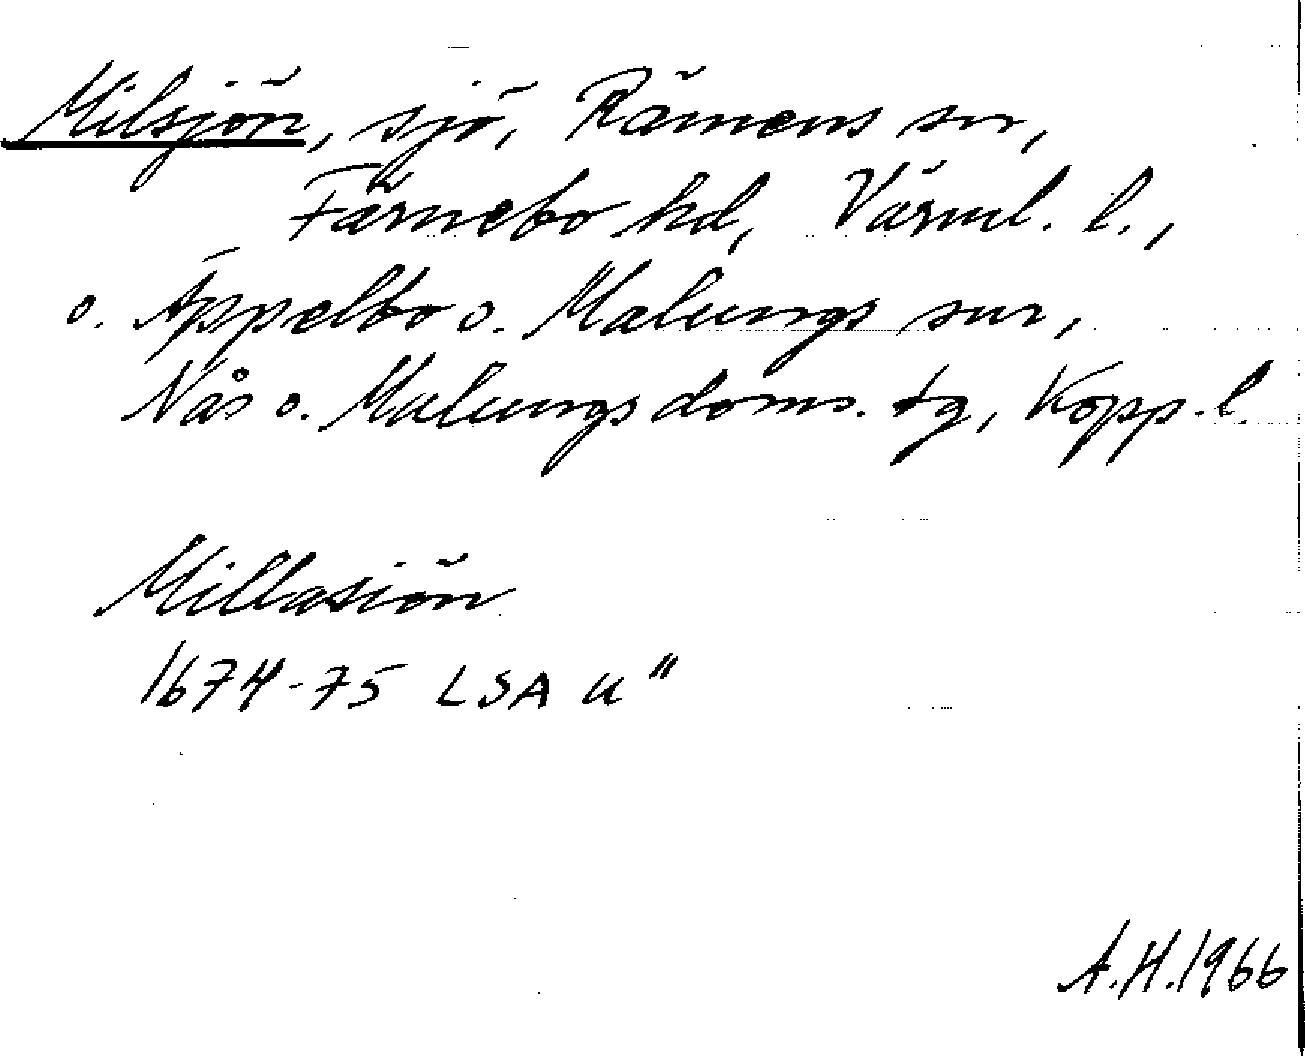 Milsjön, sjö, Rämens sn,
Färnebo hd, Värml. l.,
o. Äppelbo o. Malungs snr,
Nås o. Malungs doms. tg, Kopp. l.
Millasiön
1674-75 LSA u"
A.H. 1966